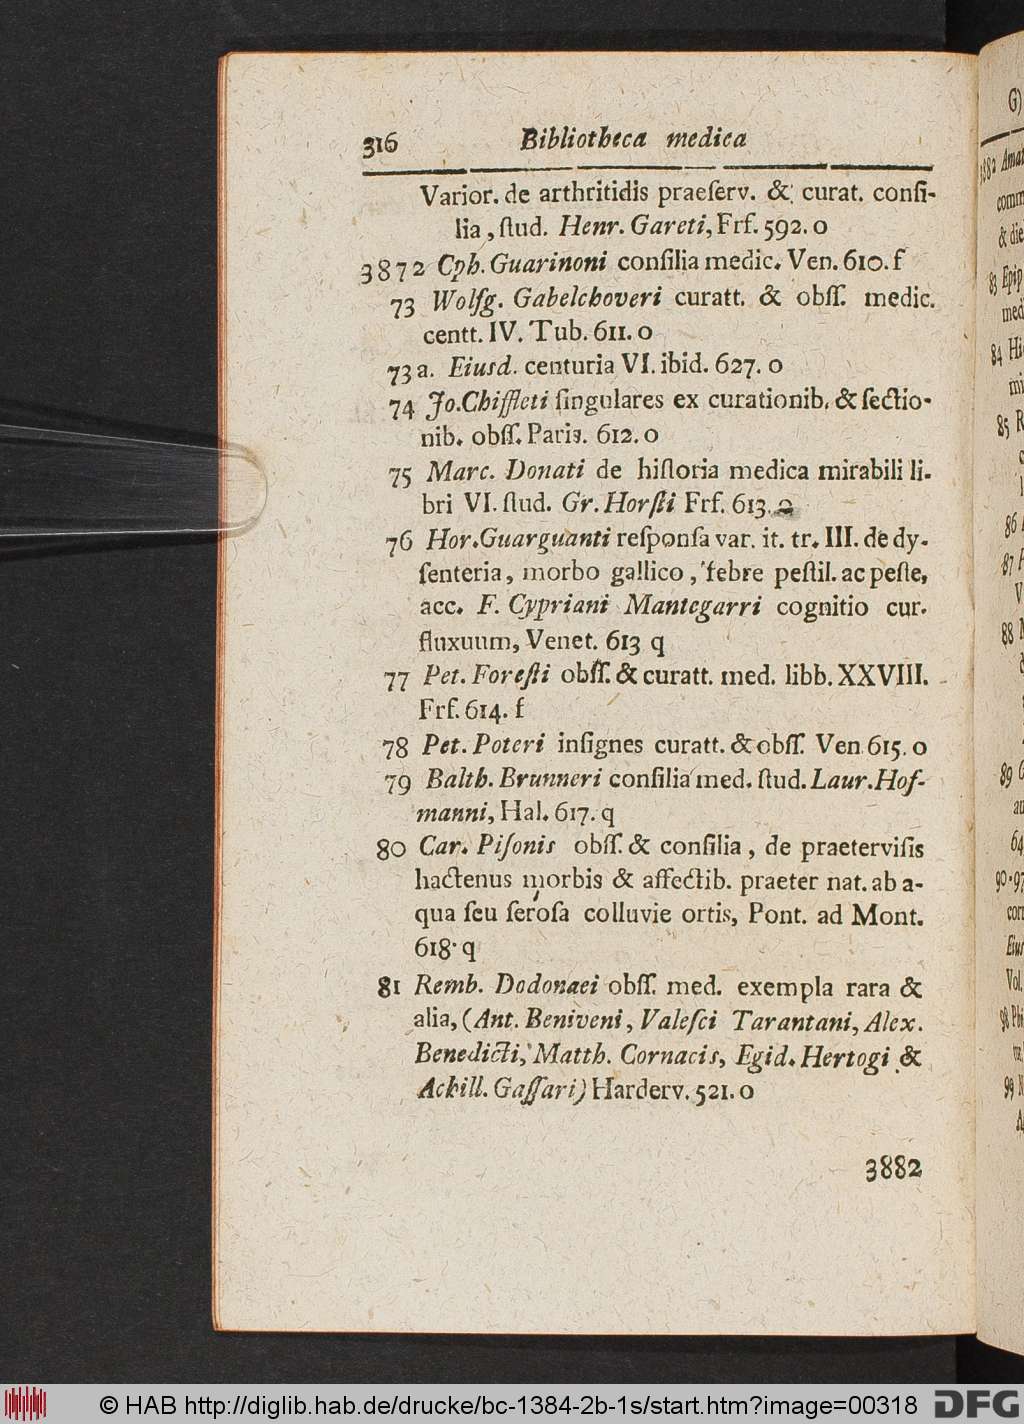 316 Bibliotheca medica
Varior. de arthritidis praeſerv. & curat. conſi-
lia, ſtud. Henr. Gareti, Frf. 592. o
3872 Cph. Guarinoni conſilia medic. Ven. 610. f
73 Wolfg. Gabelchoveri curatt. & obſſ. medic.
centt. IV. Tub. 611. o
73 a. Eiusd. centuria VI. ibid. 627. o
74 Jo. Chiffleti ſingulares ex curationib. & ſectio-
nib. obſſ. Paris. 612. o
75 Marc. Donati de hiſtoria medica mirabili li-
bri VI. ſtud. Gr. Horſti Frf. 613. o
76 Hor. Guarguanti reſponſa var. it. tr. III. de dy-
ſenteria, morbo gallico, febre peſtil. ac peſte,
acc. F. Cypriani Mantegarri cognitio cur.
fluxuum, Venet. 613 q
77 Pet. Foreſti obſſ. & curatt. med. libb. XXVIII.
Frf. 614. f
78 Pet. Poteri inſignes curatt. & obſſ. Ven 615. o
79 Balth. Brunneri conſilia med. ſtud. Laur. Hof-
manni, Hal. 617. q
80 Car. Piſonis obſſ. & conſilia, de praeterviſis
hactenus morbis & affectib. praeter nat. ab a-
qua ſeu ſeroſa colluvie ortis, Pont. ad Mont.
618. q
81 Remb. Dodonaei obſſ. med. exempla rara &
alia, (Ant. Beniveni, Valeſci Tarantani, Alex.
Benedicti, Matth. Cornacis, Egid. Hertogi &
Achill. Gaſſari) Harderv. 521. o
3882
© HAB http://diglib.hab.de/drucke/bc-1384-2b-1s/start.htm?image=00318
DFG